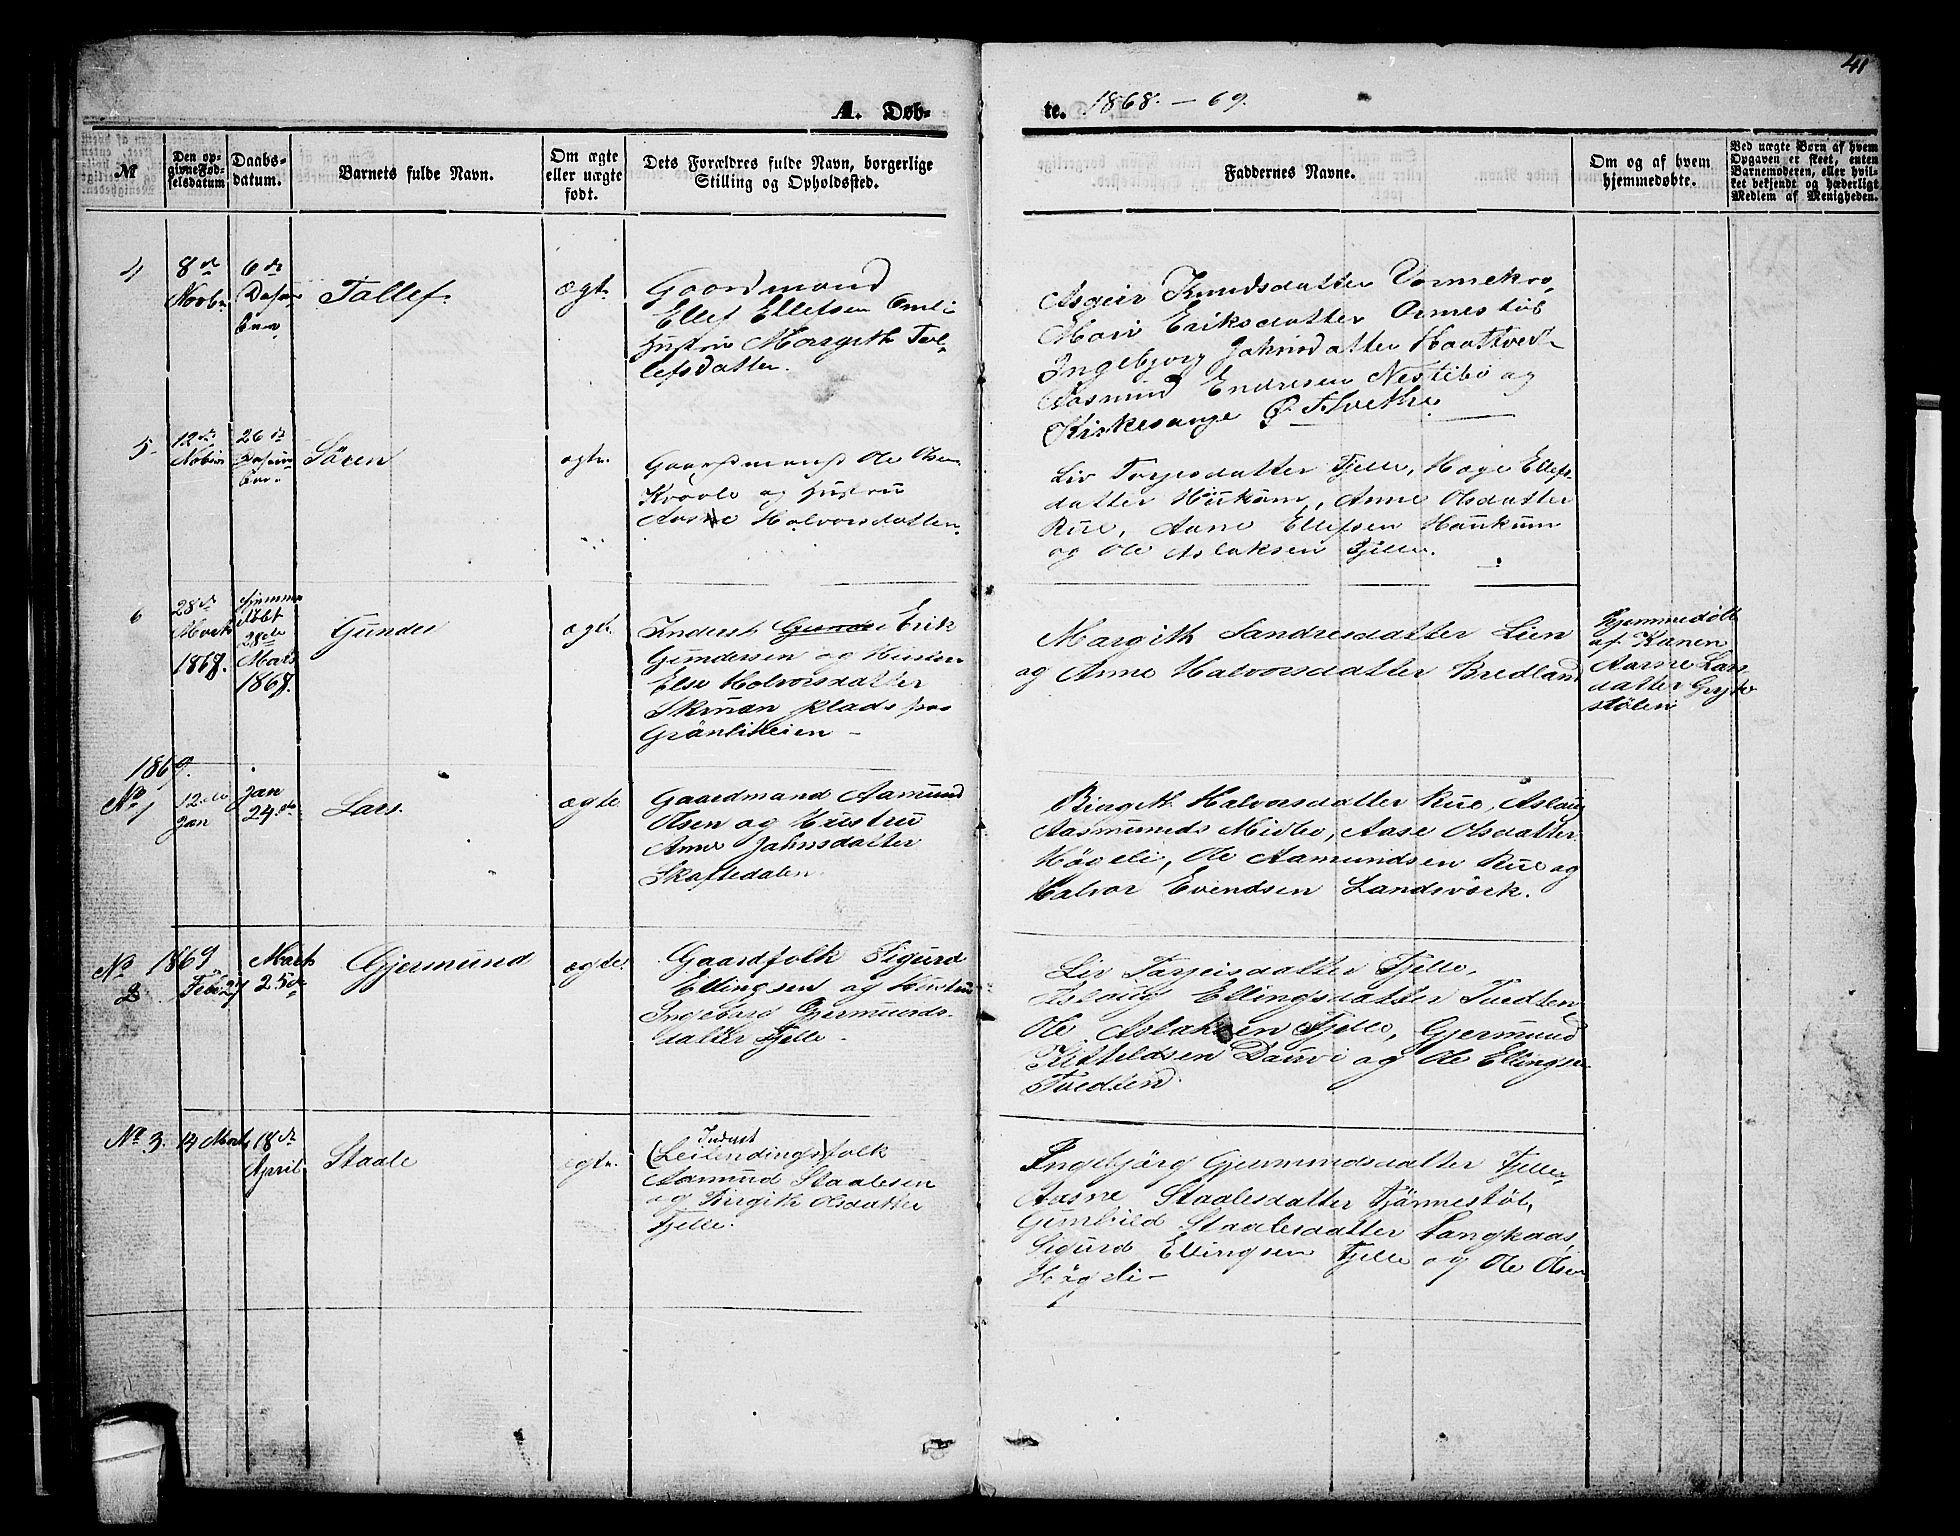 41
A. Døb-
te. 1868. - 69.
№
Den op-
givne Fød-
selsdatum
Daabs-
datum.
Barnets fulde Navn.
Om ægte
eller uægte
født.
Dets Forældres fulde Navn, borgerlige
Stilling og Opholdssted.
Faddernes Navne.
Om og af hvem
hjemmedøbte.
Ved uægte Børn af hvem
Opgaven er skeet, enten
Barnemoderen, eller hvil-
ket bekjendt og hæderligt
Medlem af Menigheden.
4
8de
Novbr
6de
Tallef.
ægt.
Gaardmand
Ellef Ellefsen
Hustru Margith Tal-
lefsdatter.
Asgier Knudsdatter
Mari Eriksdatter Ormestöl
Ingebjorg Jahnsdatter Haatved
Aasmund Endresen Nestebö og
Kirkesanger
5
12de
26de
Sören
ægte.
Gaardmand Ole Olsen
og Hustru
Aasne Halvorsdatter
Liv Torjesdatter Fjelle, Hage Ellefs-
datter Haukum, Anne Olsdatter
Rue, Aane Ellefsen Haukum
og Ole Aslaksen Fjelle.
6
28de
Marts
1868.
Hjemme
døbt
28de
Marts
1868.
Gunder
ægte.
Inderst Gunder Erik
Gundersen og Hustru
Else Halvorsdatter
plads
Grönliheien -
Margith Sandresdatter Lien
og Anne Halvorsdatter Bredland
Hjemmedöbt
af Konen
Aasne Lars
datter Gryte
stølen
1869.
No 1
12te
Jan
Jan
24de
Lars.
ægte
Gaardmand Aamund
Olsen og Hustru
Anne Jahnsdatter
Skaftedalen.
Birgith Halvorsdatter Rue, Aslaug
Aasmunds Midbo, Aase Olsdatter
Högeli, Ole Aamundsen Rue og
Halvor Evendsen Landsværk.
No
2
1869
Feb 27
Marts
25de
Gjermund
ægte.
Gaardfolk Sigurd
Ellingsen og Hustru
Ingeborg Gjermunds-
datter Fjelle.
Liv Tarjeisdatter Fjelle,
Aslaug Ellingsdatter Tvedten
Ole Aslaksen Fjelle, Gjermund
Kittildsen Dauvi og Ole Ellingsen
Tvedten.
No 3.
14 Marts
18de
April
Staale
ægte.
Inderst
(Leilendings)folk
Aamund Staalesen
og Birgith Olsdatter
Fjelle.
Ingebjörg Gjermundsdatter Fjelle,
Aasne Staalesdatter Tjärnestöl,
Gunhild Staalesdatter Langkaas,
Sigurd Ellingsen Fjelle og Ole Olsen
Högeli -